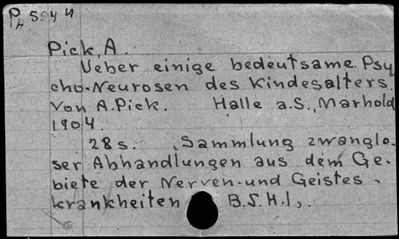 Pick, A.
Ueber einige bedeutsame Psy
cho-Neurosen des Kindesalters.
Von A. Pick. Halle a.S., Marhold
1904.
28 s. Sammlung zwanglo-
ser Abhandlungen aus dem Ge-
biete der Nerven-und Geistes-
krankheiten B.5.H.1,.